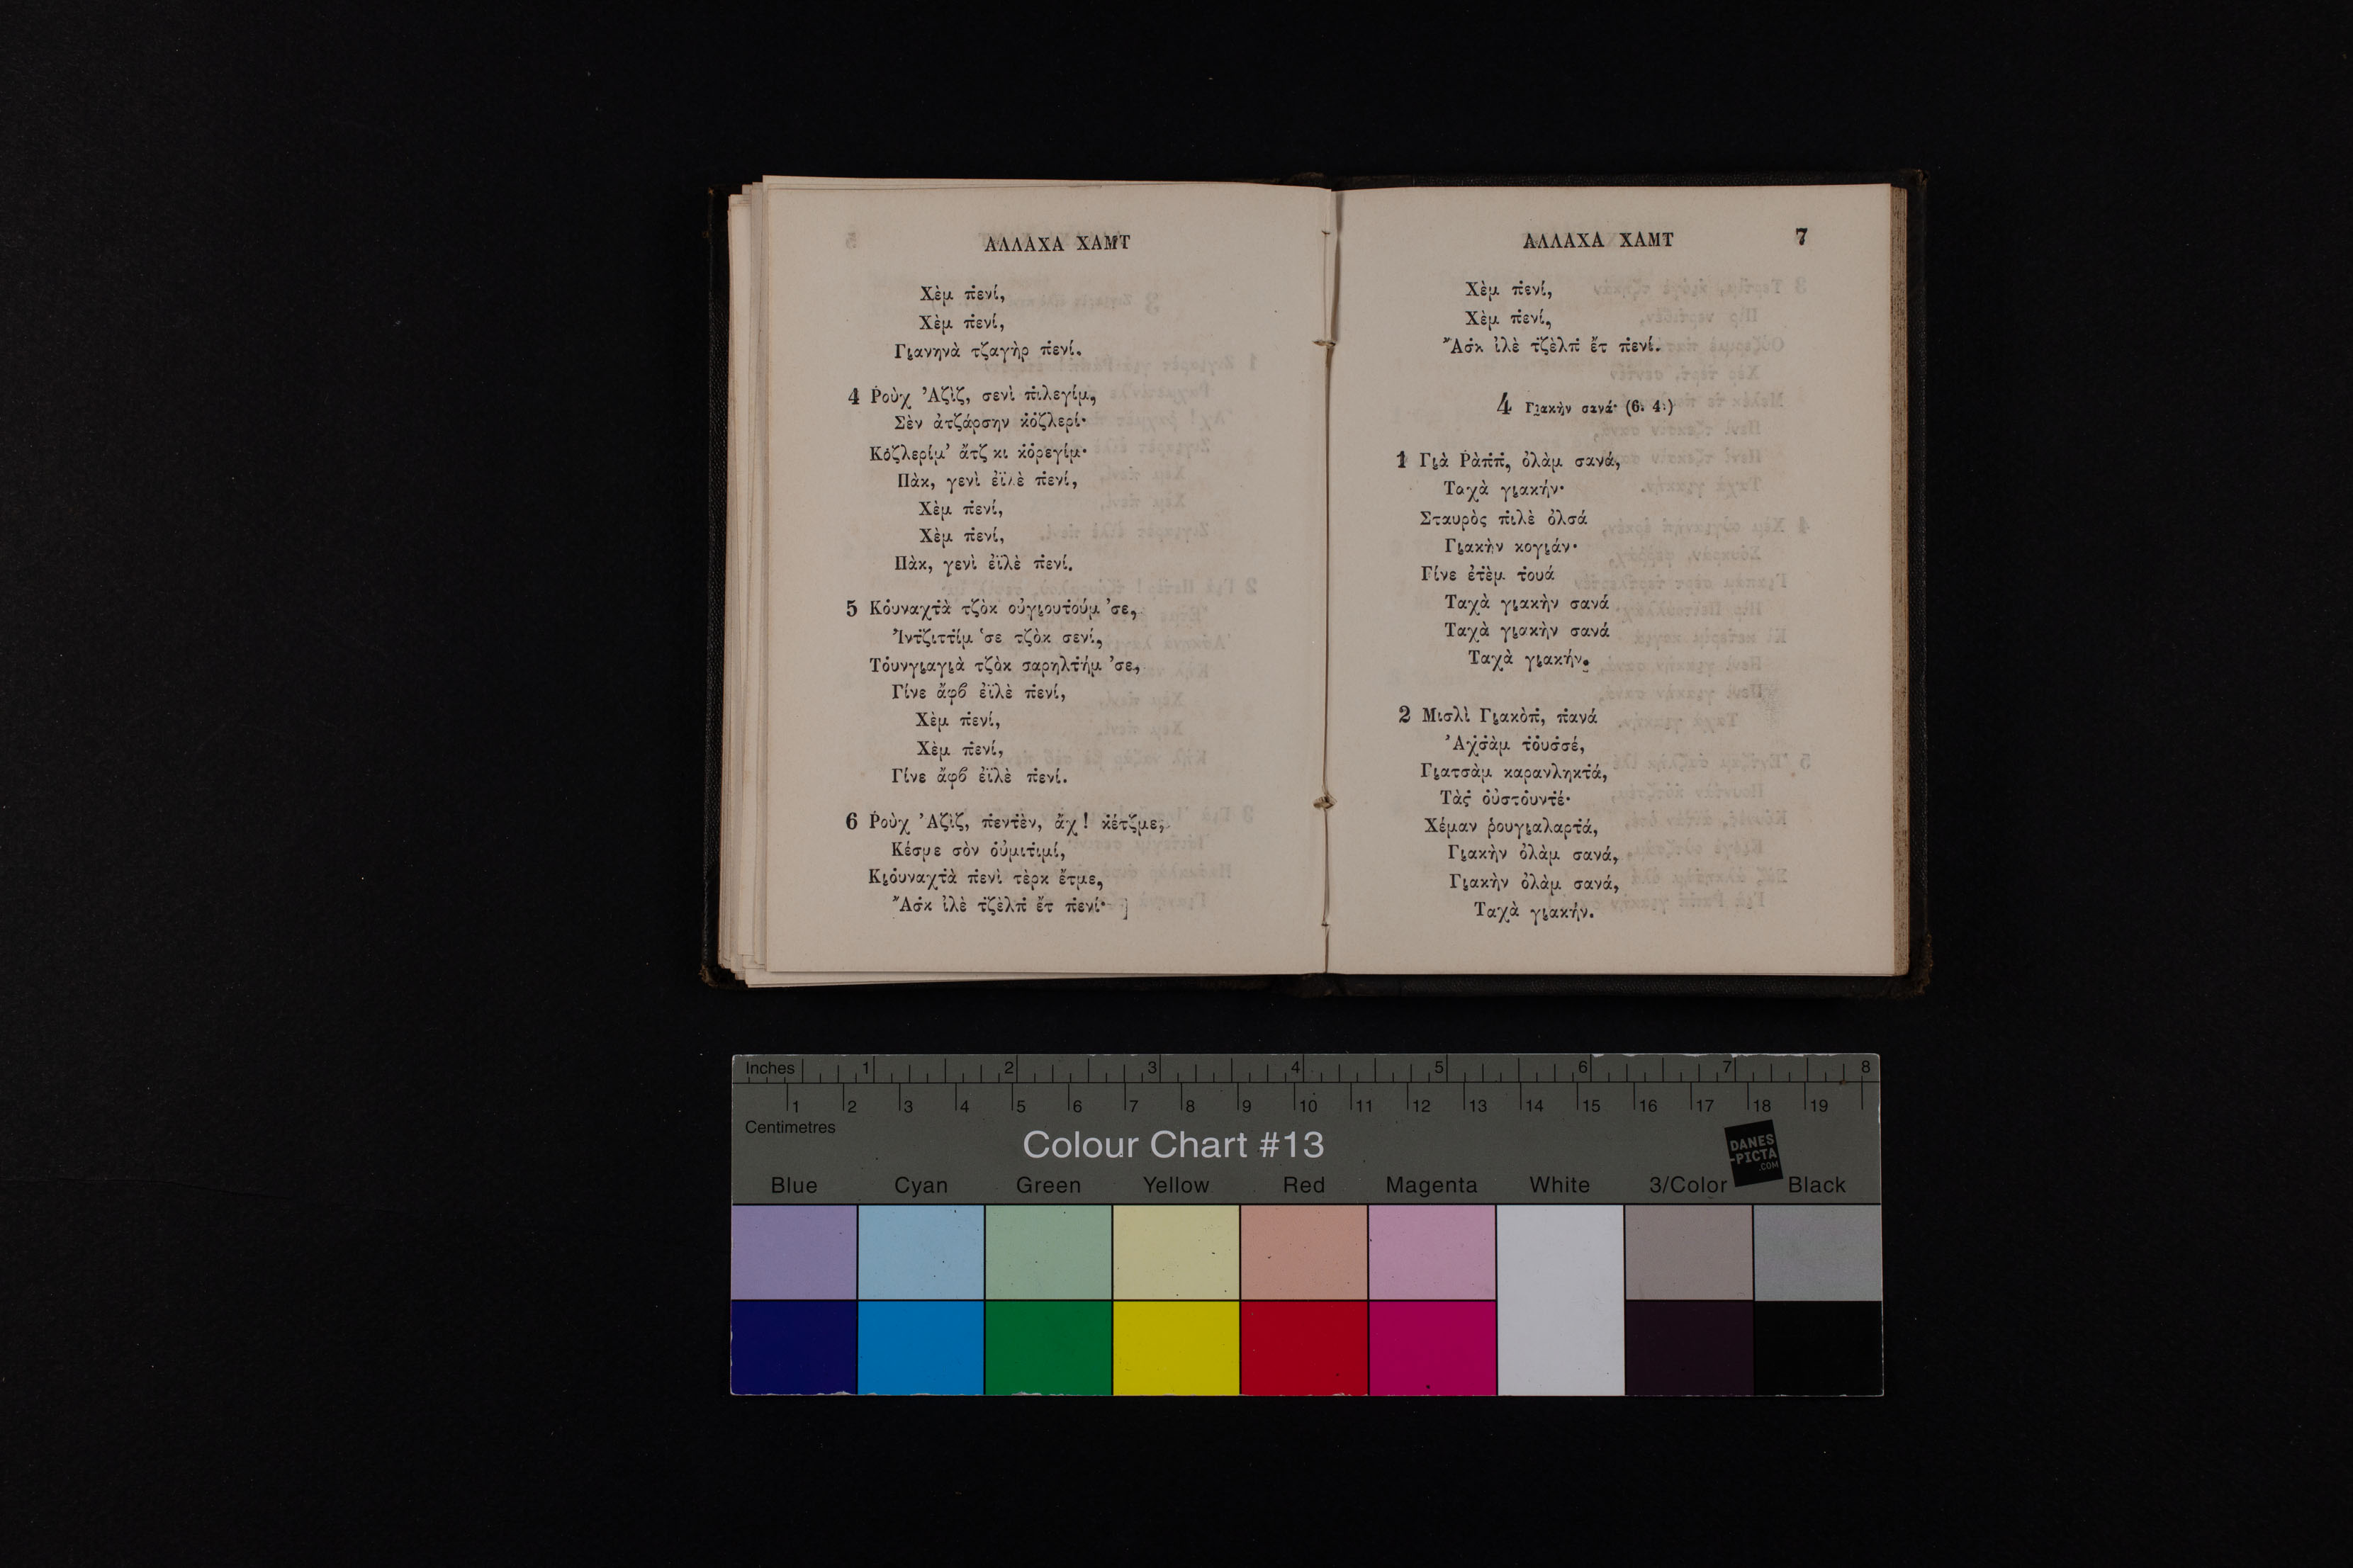 ΑΛΛΑΧΑ ΧΑΜΤ
Χὲμ π̇ενί,
Χὲμ π̇ενί,
Γιανηνὰ τζαγὴρ π̇ενί.
4 Ῥοὺχ Ἀζὶζ, σενὶ π̇ιλεγίμ,
Σὲν ἀτζάρσην κ̇ὸζλερί·
Κὸζλερίμ' ἄτζ κι κ̇ὸρεγίμ·
Πὰκ, γενὶ ἐϊλὲ π̇ενί,
Χὲμ π̇ενί,
Χὲμ π̇ενί,
Πὰκ, γενὶ ἐϊλὲ π̇ενί.
5 Κὸυναχτ̇ὰ τζὸκ οὐγιουτ̇ούμ 'σε,
Ἰντ̇ζιττ̇ίμ 'σε τζὸκ σενί,
Τ̇ουνγιαγιὰ τζὸκ σαρηλτ̇ήμ 'σε,
Γίνε ἄφϐ ἐϊλὲ π̇ενί,
Χὲμ π̇ενί,
Χὲμ π̇ενί,
Γίνε ἄφϐ ἐϊλὲ π̇ενί.
6 Ῥοὺχ Ἀζὶζ, π̇εντ̇ὲν, ἄχ! κ̇έτζμε,
Κέσμε σὸν ο̇ὐμιτ̇ιμί,
Κιὸυναχτ̇ὰ π̇ενὶ τὲρκ ἔτμε,
Ἄσ̇κ ἰλὲ τ̇ζὲλπ̇ ἔτ π̇ενί·
ΑΛΛΑΧΑ ΧΑΜΤ 7
Χὲμ π̇ενί,
Χὲμ π̇ενί,
Ἄσ̇κ ἰλὲ τ̇ζὲλπ̇ ἔτ π̇ενί.
4 Γιακὴν σανά· (6. 4.)
1 Γιὰ Ῥὰπ̇π̇, ὀλὰμ σανά,
Ταχὰ γιακήν·
Σταυρὸς π̇ιλὲ ὀλσά
Γιακὴν κογιάν·
Γίνε ἐτ̇ὲμ τ̇ουά
Ταχὰ γιακὴν σανά
Ταχὰ γιακὴν σανά
Ταχὰ γιακήν.
2 Μισλὶ Γιακὸπ̇, π̇ανά
Ἀχσ̇ὰμ τ̇ο̇υσσέ,
Γιατσὰμ καρανληκτ̇ά,
Τὰς̇ ο̇ὐστο̇υντ̇έ·
Χέμαν ῥουγιαλαρτ̇ά,
Γιακὴν ὀλὰμ σανά,
Γιακὴν ὀλὰμ σανά,
Ταχὰ γιακήν.
Inches 1 2 3 4 5 6 7 8
1 2 3 4 5 6 7 8 9 10 11 12 13 14 15 16 17 18 19
Centimetres
Colour Chart #13
DANES
-PICTA
.COM
Blue Cyan Green Yellow Red Magenta White 3/Color Black